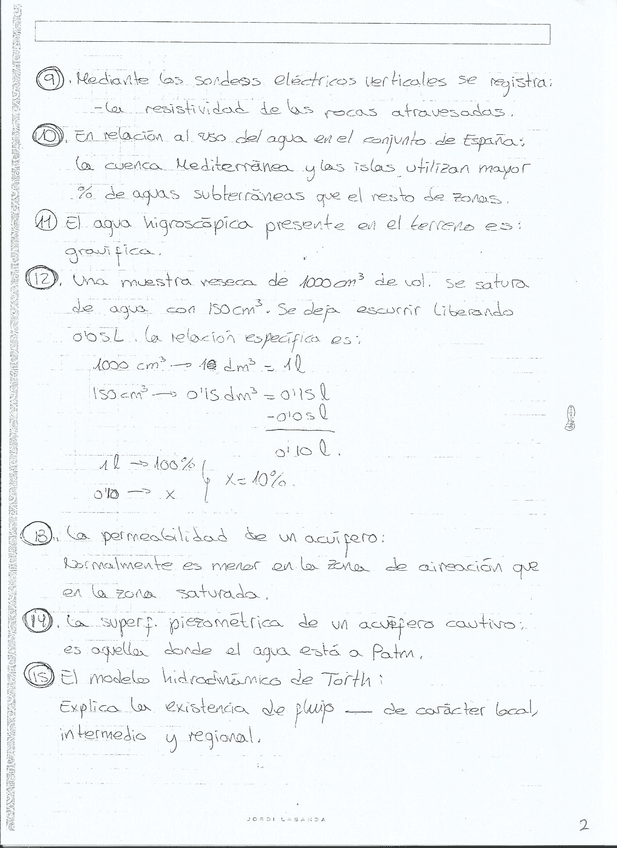 9. Mediante los sondeos eléctricos verticales se registra:
- La resistividad de las rocas atravesadas.
10. En relación al uso del agua en el conjunto de España:
la cuenca Mediterránea y las islas utilizan mayor
% de aguas subterráneas que el resto de zonas.
11 El agua higroscópica presente en el terreno es:
gravífica.
12. Una muestra reseca de 1000 cm³ de vol. se satura
de agua con 150 cm³. Se deja escurrir liberando
0'05L. La relación específica es:
1000 cm³ → 1 dm³ = 1l
150 cm³ → 0'15 dm³ = 0'15 l
-0'05 l
0'10 l.
1l → 100%
x = 10%.
0'10 → x
13. La permeabilidad de un acuífero:
Normalmente es menor en la zona de aireación que
en la zona saturada.
14. La superf. piezométrica de un acuífero cautivo:
es aquella donde el agua está a Patm.
15 El modelo hidrodinámico de Toith:
Explica la existencia de flujo — de carácter local,
intermedio y regional.
JORDI LABANDA
2